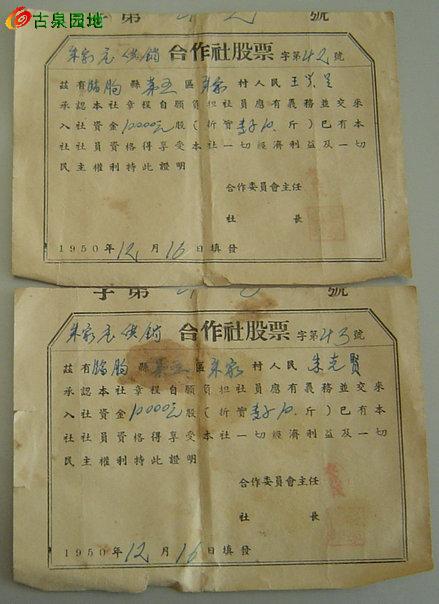 古泉园地
字第 號
朱家庄供銷 合作社股票 字第42號
茲有臨朐縣第五區朱家村人民王
承認本社章程自願負担社員應有義務並交來
入社資金10000元股(折實 10.斤)已有本
社社員資格得享受本社一切經濟利益及一切
民主權利特此證明
合作委員會主任
社 長
1950年12月16日填發
字第 號
朱家庄供銷 合作社股票 字第43號
茲有臨朐縣第五區朱家村人民朱克賢
承認本社章程自願負担社員應有義務並交來
入社資金10000元股(折實 10.斤)已有本
社社員資格得享受本社一切經濟利益及一切
民主權利特此證明
合作委員會主任
社 長
1950年12月16日填發